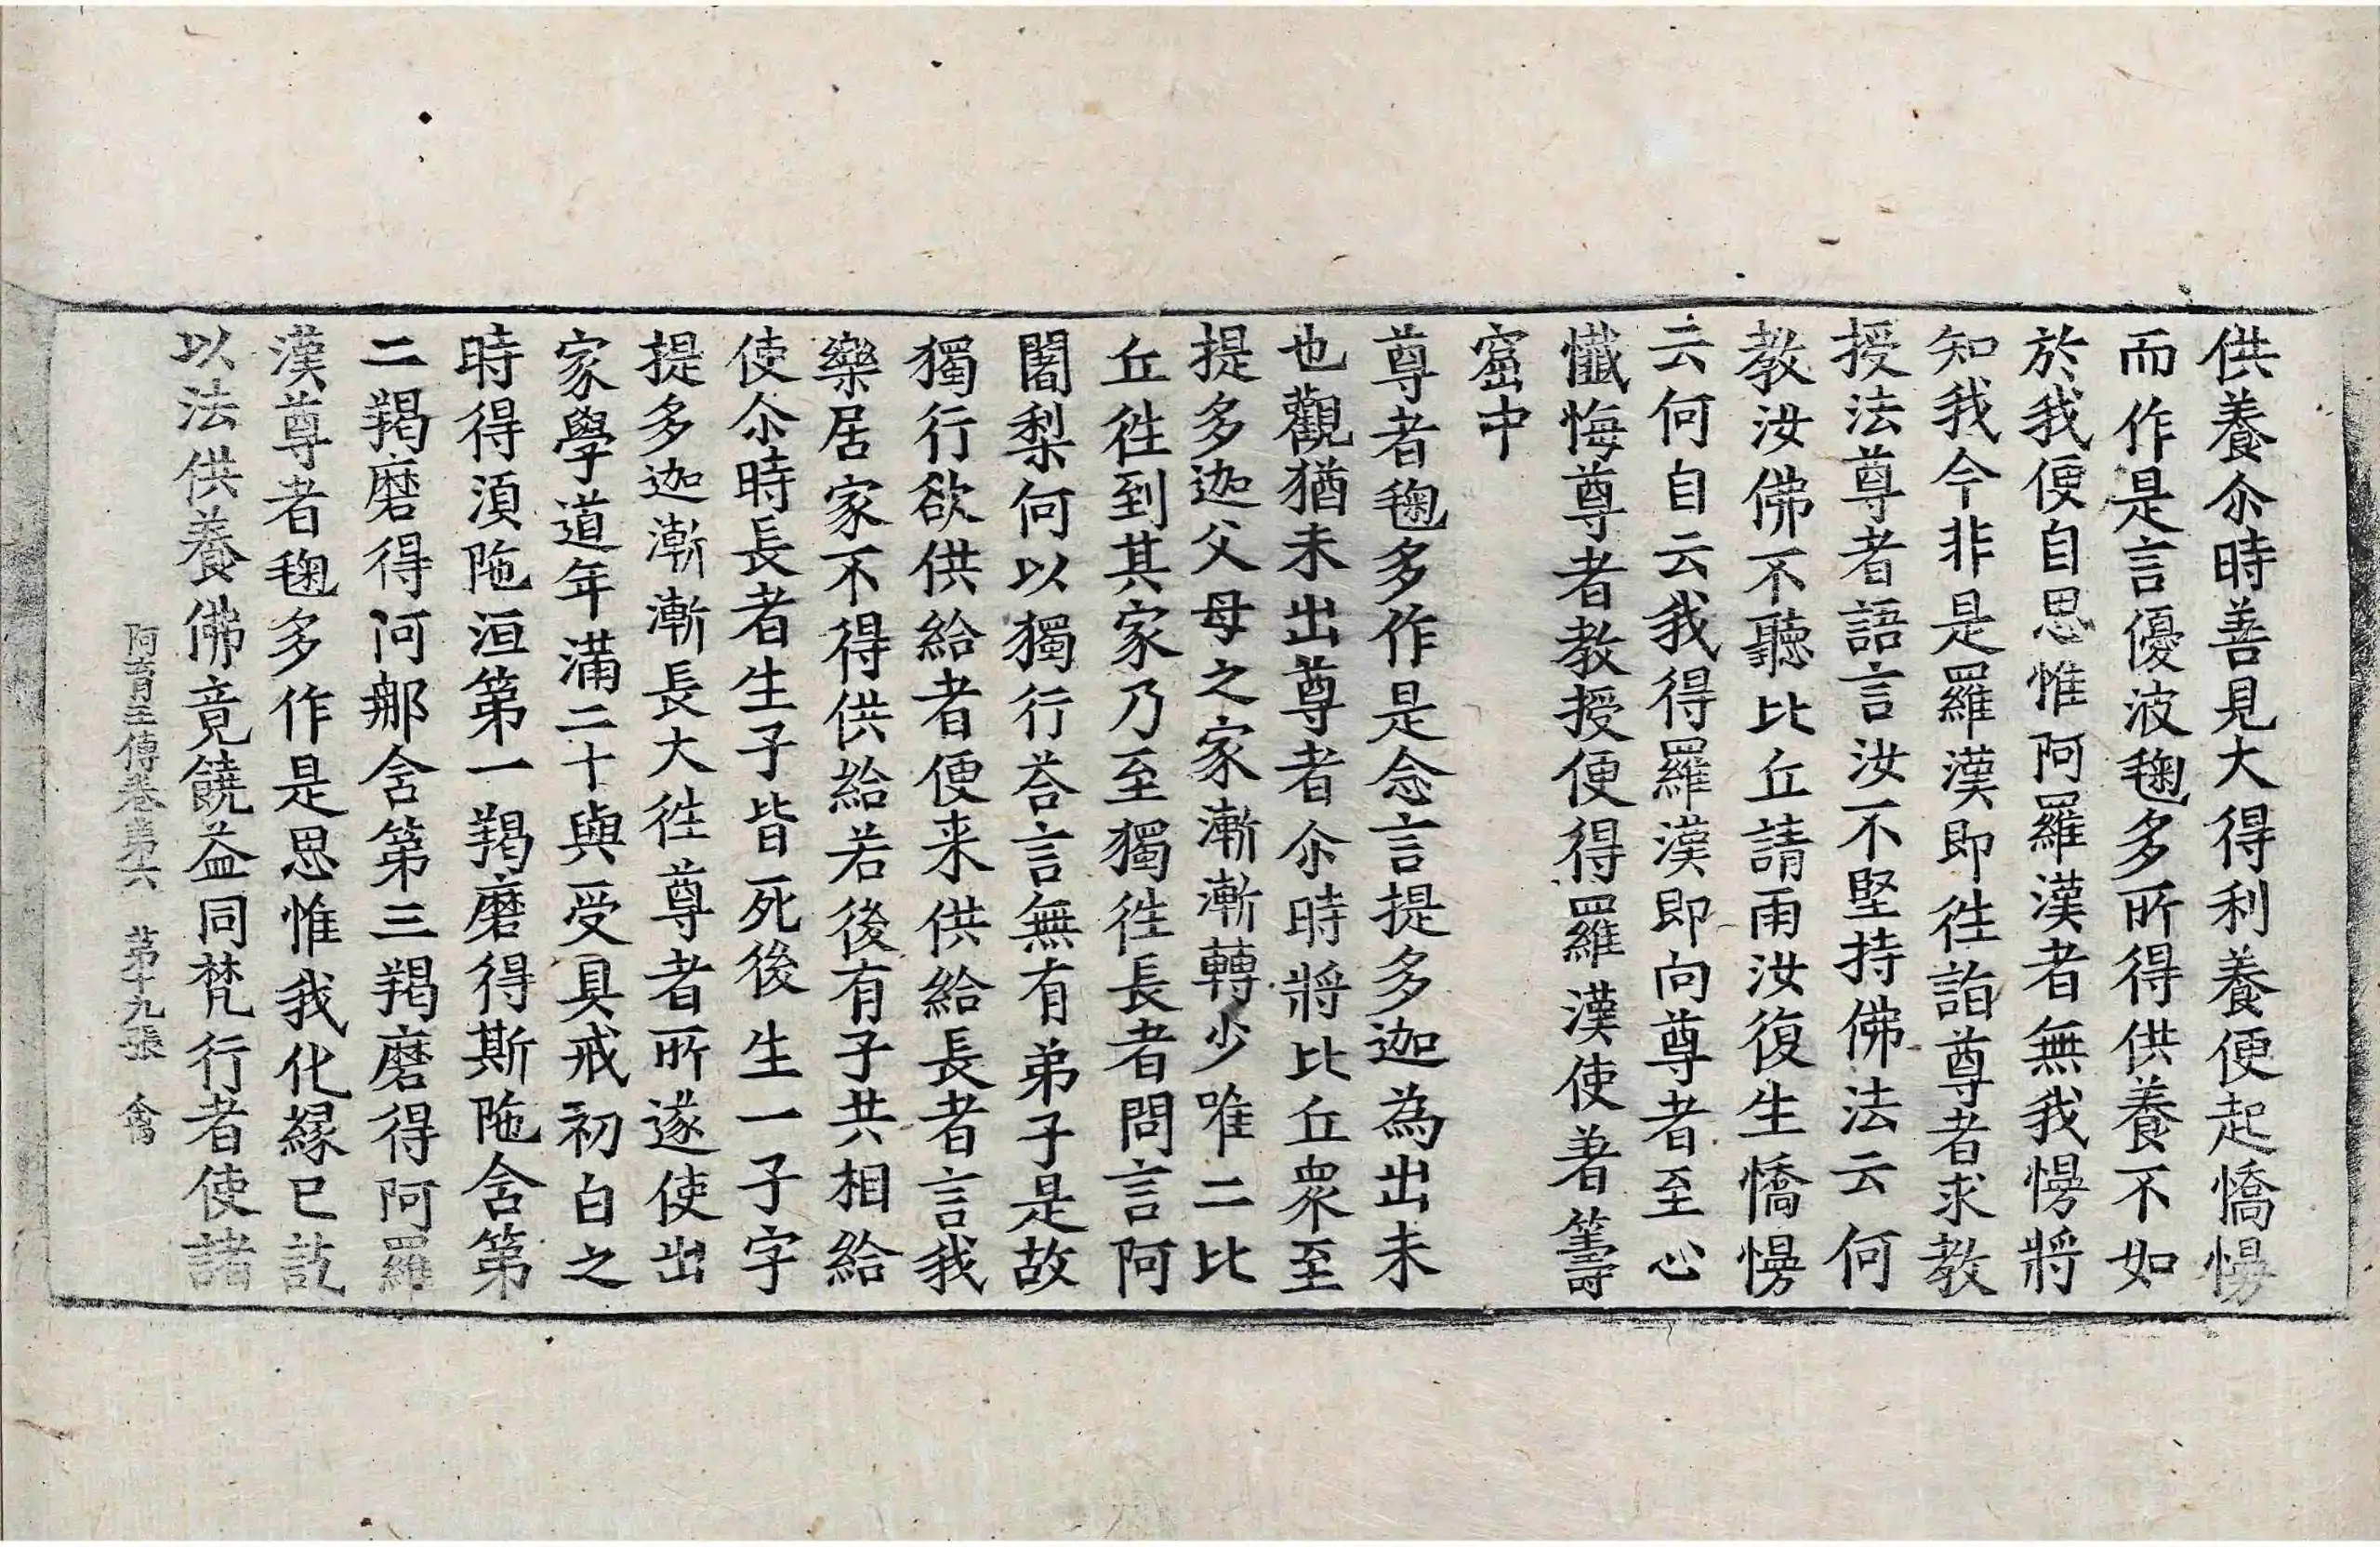 供養尒時善見大得利養便起憍慢
而作是言優波毱多所得供養不如
於我便自思惟阿羅漢者無我慢將
知我今非是羅漢即徃詣尊者求教
授法尊者語言汝不堅持佛法云何
教汝佛不聽比丘請雨汝復生憍慢
云何自云我得羅漢即向尊者至心
懺悔尊者教授便得羅漢使著籌
窟中
尊者毱多作是念言提多迦為出未
也觀猶未出尊者尒時將比丘眾至
提多迦父母之家漸漸轉少唯二比
丘徃到其家乃至獨徃長者問言阿
闍梨何以獨行荅言無有弟子是故
獨行欲供給者便来供給長者言我
樂居家不得供給若後有子共相給
使尒時長者生子皆死後生一子字
提多迦漸漸長大徃尊者所遂使出
家學道年滿二十與受具戒初白之
時得湏陁洹第一羯磨得斯陁含第
二羯磨得阿那含第三羯磨得阿羅
漢尊者毱多作是思惟我化緣已訖
以法供養佛竟饒益同梵行者使諸
阿育王傳卷苐六 苐十九張 禽